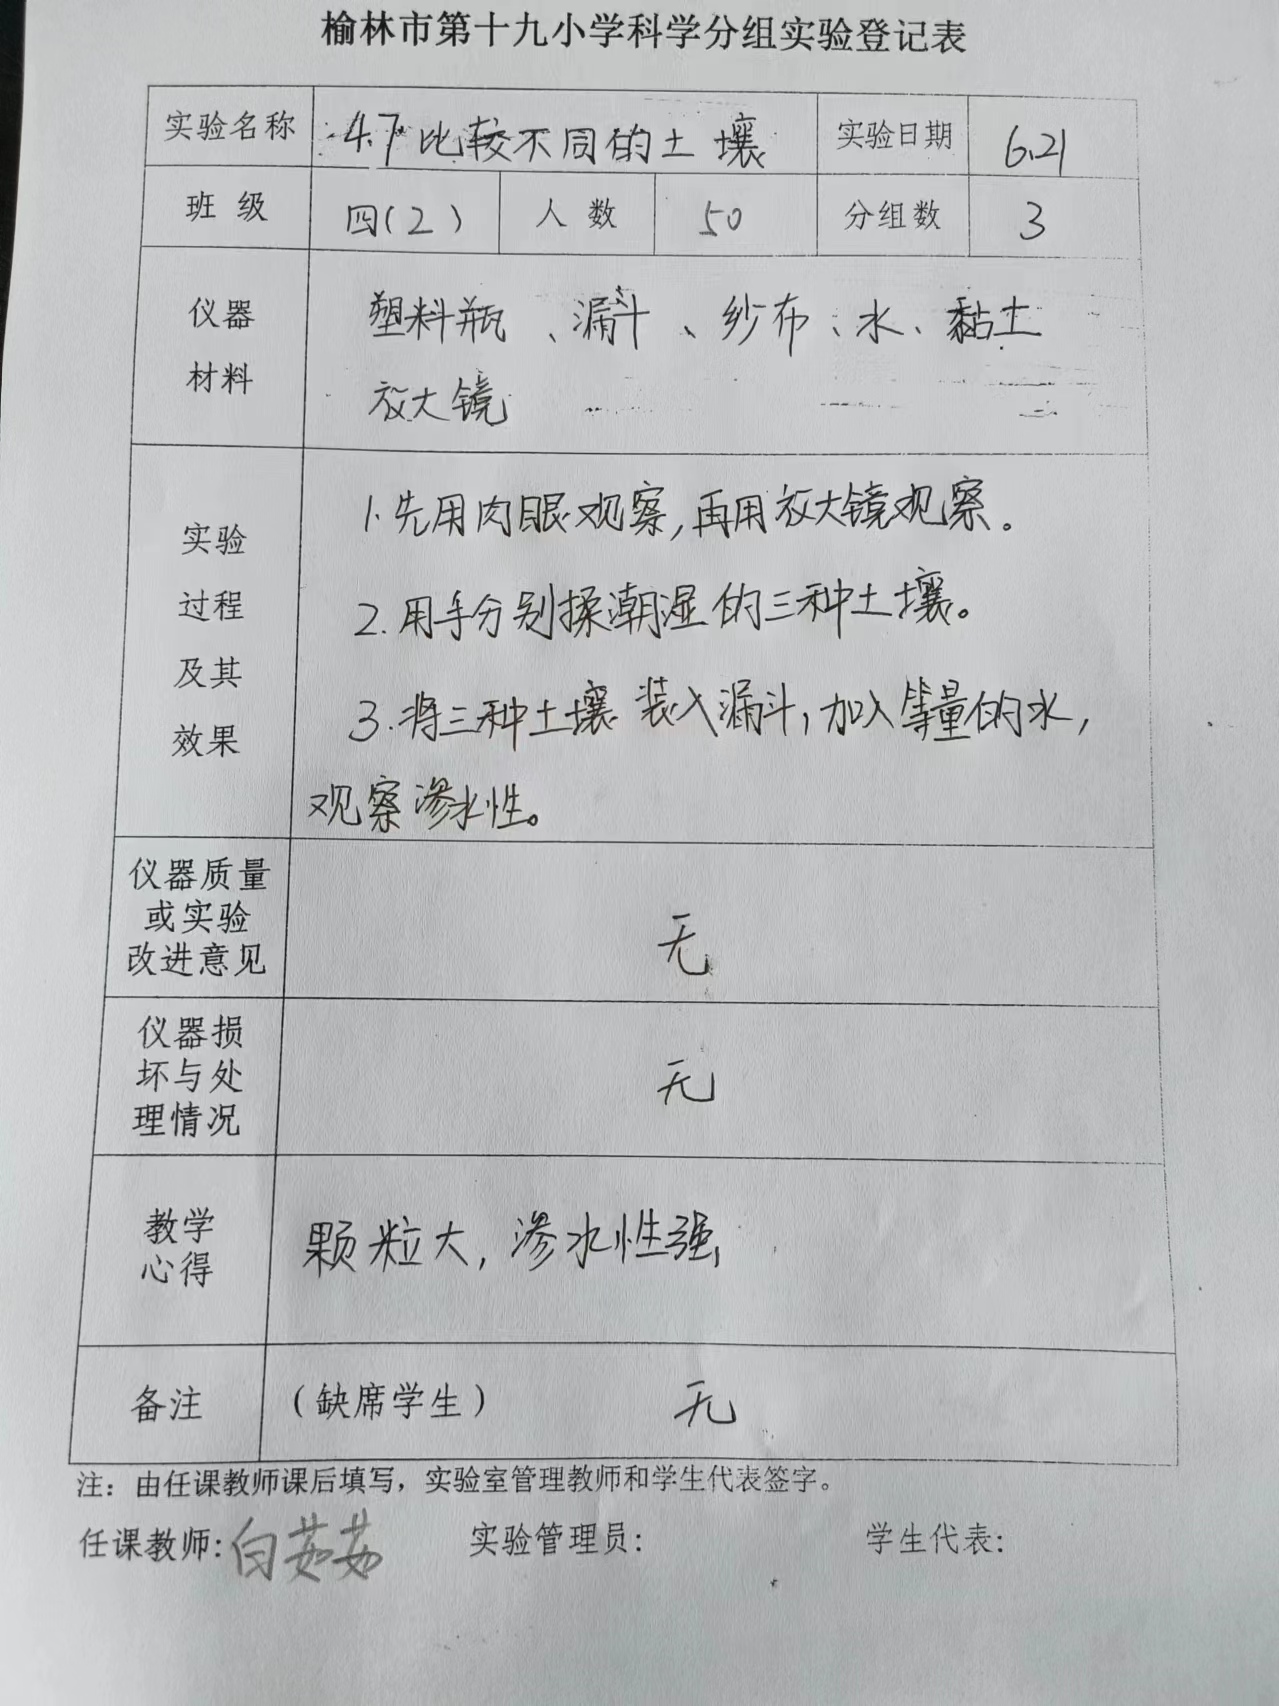 榆林市第十九小学科学分组实验登记表
实验名称 4.7 比较不同的土壤 实验日期 6.21
班级 四(2) 人数 50 分组数 3
仪器 塑料瓶、漏斗、纱布、水、黏土
材料 放大镜
1.先用肉眼观察,再用放大镜观察。
实验
过程 2.用手分别揉潮湿的三种土壤。
及其
效果 3.将三种土壤装入漏斗,加入等量的水,
观察渗水性。
仪器质量
或实验 无
改进意见
仪器损
坏与处 无
理情况
教学 颗粒大,渗水性强
心得
备注 (缺席学生) 无
注：由任课教师课后填写，实验室管理教师和学生代表签字。
任课教师:白茹茹 实验管理员: 学生代表: